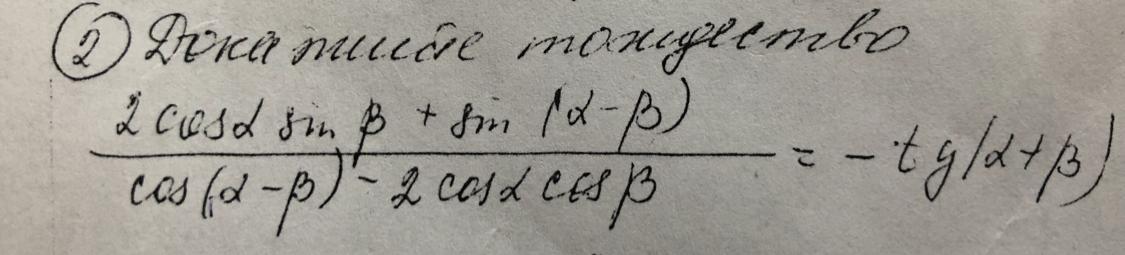 ② Докажите тождество
2 cos α sin β + sin (α - β)
cos (α - β) - 2 cos α cos β
= - tg (α + β)